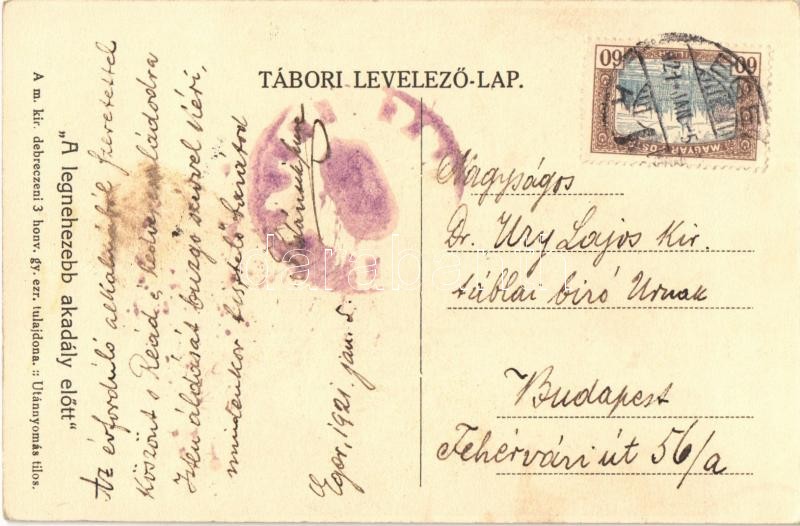 TÁBORI LEVELEZŐ-LAP.
60 60
MAGYAR
Nagyságos
Dr. Ury Lajos kir.
táblai biró Urnak
Budapest
Fehérvári út 56/a
Az évforduló alkalmából szeretettel
köszönt s Reád és kedves családodra
Isten áldását buzgó szivvel kéri,
mindenkor tisztelő barátod
Eger, 1921. jan. 5.
„A legnehezebb akadály előtt“
A m. kir. debreczeni 3 honv. gy. ezr. tulajdona. :: Utánnyomás tilos.
darabanth